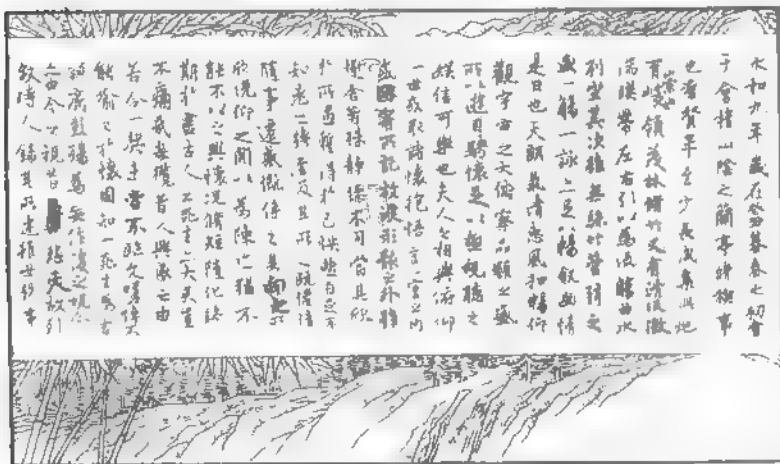 永和九年歲在癸丑暮春之初會
于會稽山陰之蘭亭脩稧事
也羣賢畢至少長咸集此地
有崇山峻領茂林脩竹又有清流激
湍暎帶左右引以為流觴曲水
列坐其次雖無絲竹管弦之
盛一觴一詠亦足以暢敘幽情
是日也天朗氣清惠風和暢仰
觀宇宙之大俯察品類之盛
所以遊目騁懷足以極視聽之
娛信可樂也夫人之相與俯仰
一世或取諸懷抱悟言一室之內
或因寄所託放浪形骸之外雖
趣舍萬殊靜躁不同當其欣
於所遇蹔得於己快然自足不
知老之將至及其所之既惓情
隨事遷感慨係之矣向之所
欣俛仰之間以為陳迹猶不
能不以之興懷況脩短隨化終
期於盡古人云死生亦大矣豈
不痛哉每攬昔人興感之由
若合一契未嘗不臨文嗟悼不
能喻之於懷固知一死生為虛
誕齊彭殤為妄作後之視今
亦由今之視昔悲夫故列
敘時人錄其所述雖世殊事